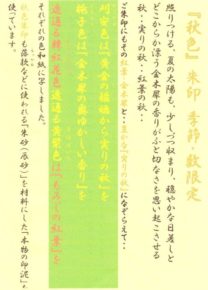 『秋色』朱印 季節・数限定
照りつける、夏の太陽も、少しづつ収まり、穏やかな日差しと
どこからか漂う金木犀の香りがふと切なさを思い起こさせる
秋・・実りの秋・・紅葉の秋・・
ご朱印にもその紅葉・金木犀と・・豊かな"実りの秋"になぞらえて・・
刈安色は"黄金の稲穂から実りの秋"を
梔子色は"金木犀の奥ゆかしい香り"を
それぞれの色和紙に写しました。
秋色朱印も岩絵などに使われる「朱砂(辰砂)」を材料にした「本物の印泥」を
使っています。